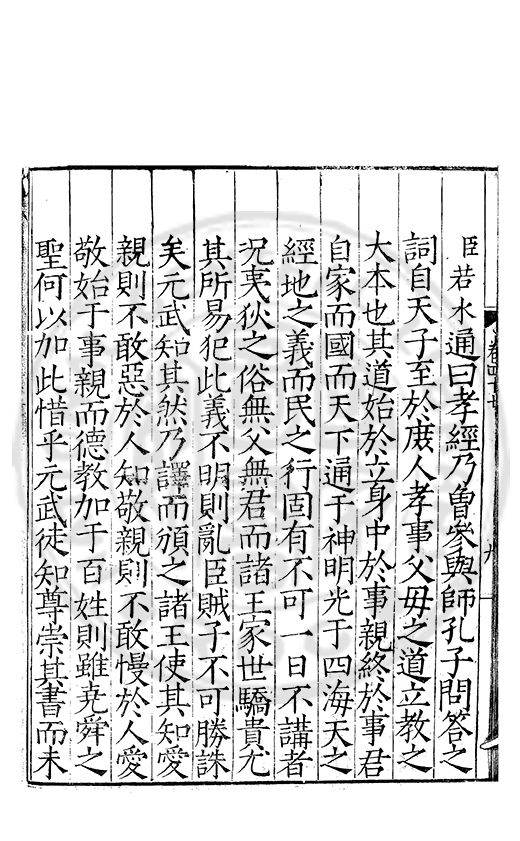 臣若水通曰孝經乃曾參與師孔子問答之
詞自天子至於庶人孝事父母之道立教之
大本也其道始於立身中於事親終於事君
自家而國而天下通于神明光于四海天之
經地之義而民之行固有不可一日不講者
況夷狄之俗無父無君而諸王家世驕貴尤
其所易犯此義不明則亂臣賊子不可勝誅
矣元武知其然乃譯而頒之諸王使其知愛
親則不敢惡於人知敬親則不敢慢於人愛
敬始于事親而德教加于百姓則雖堯舜之
聖何以加此惜乎元武徒知尊崇其書而未